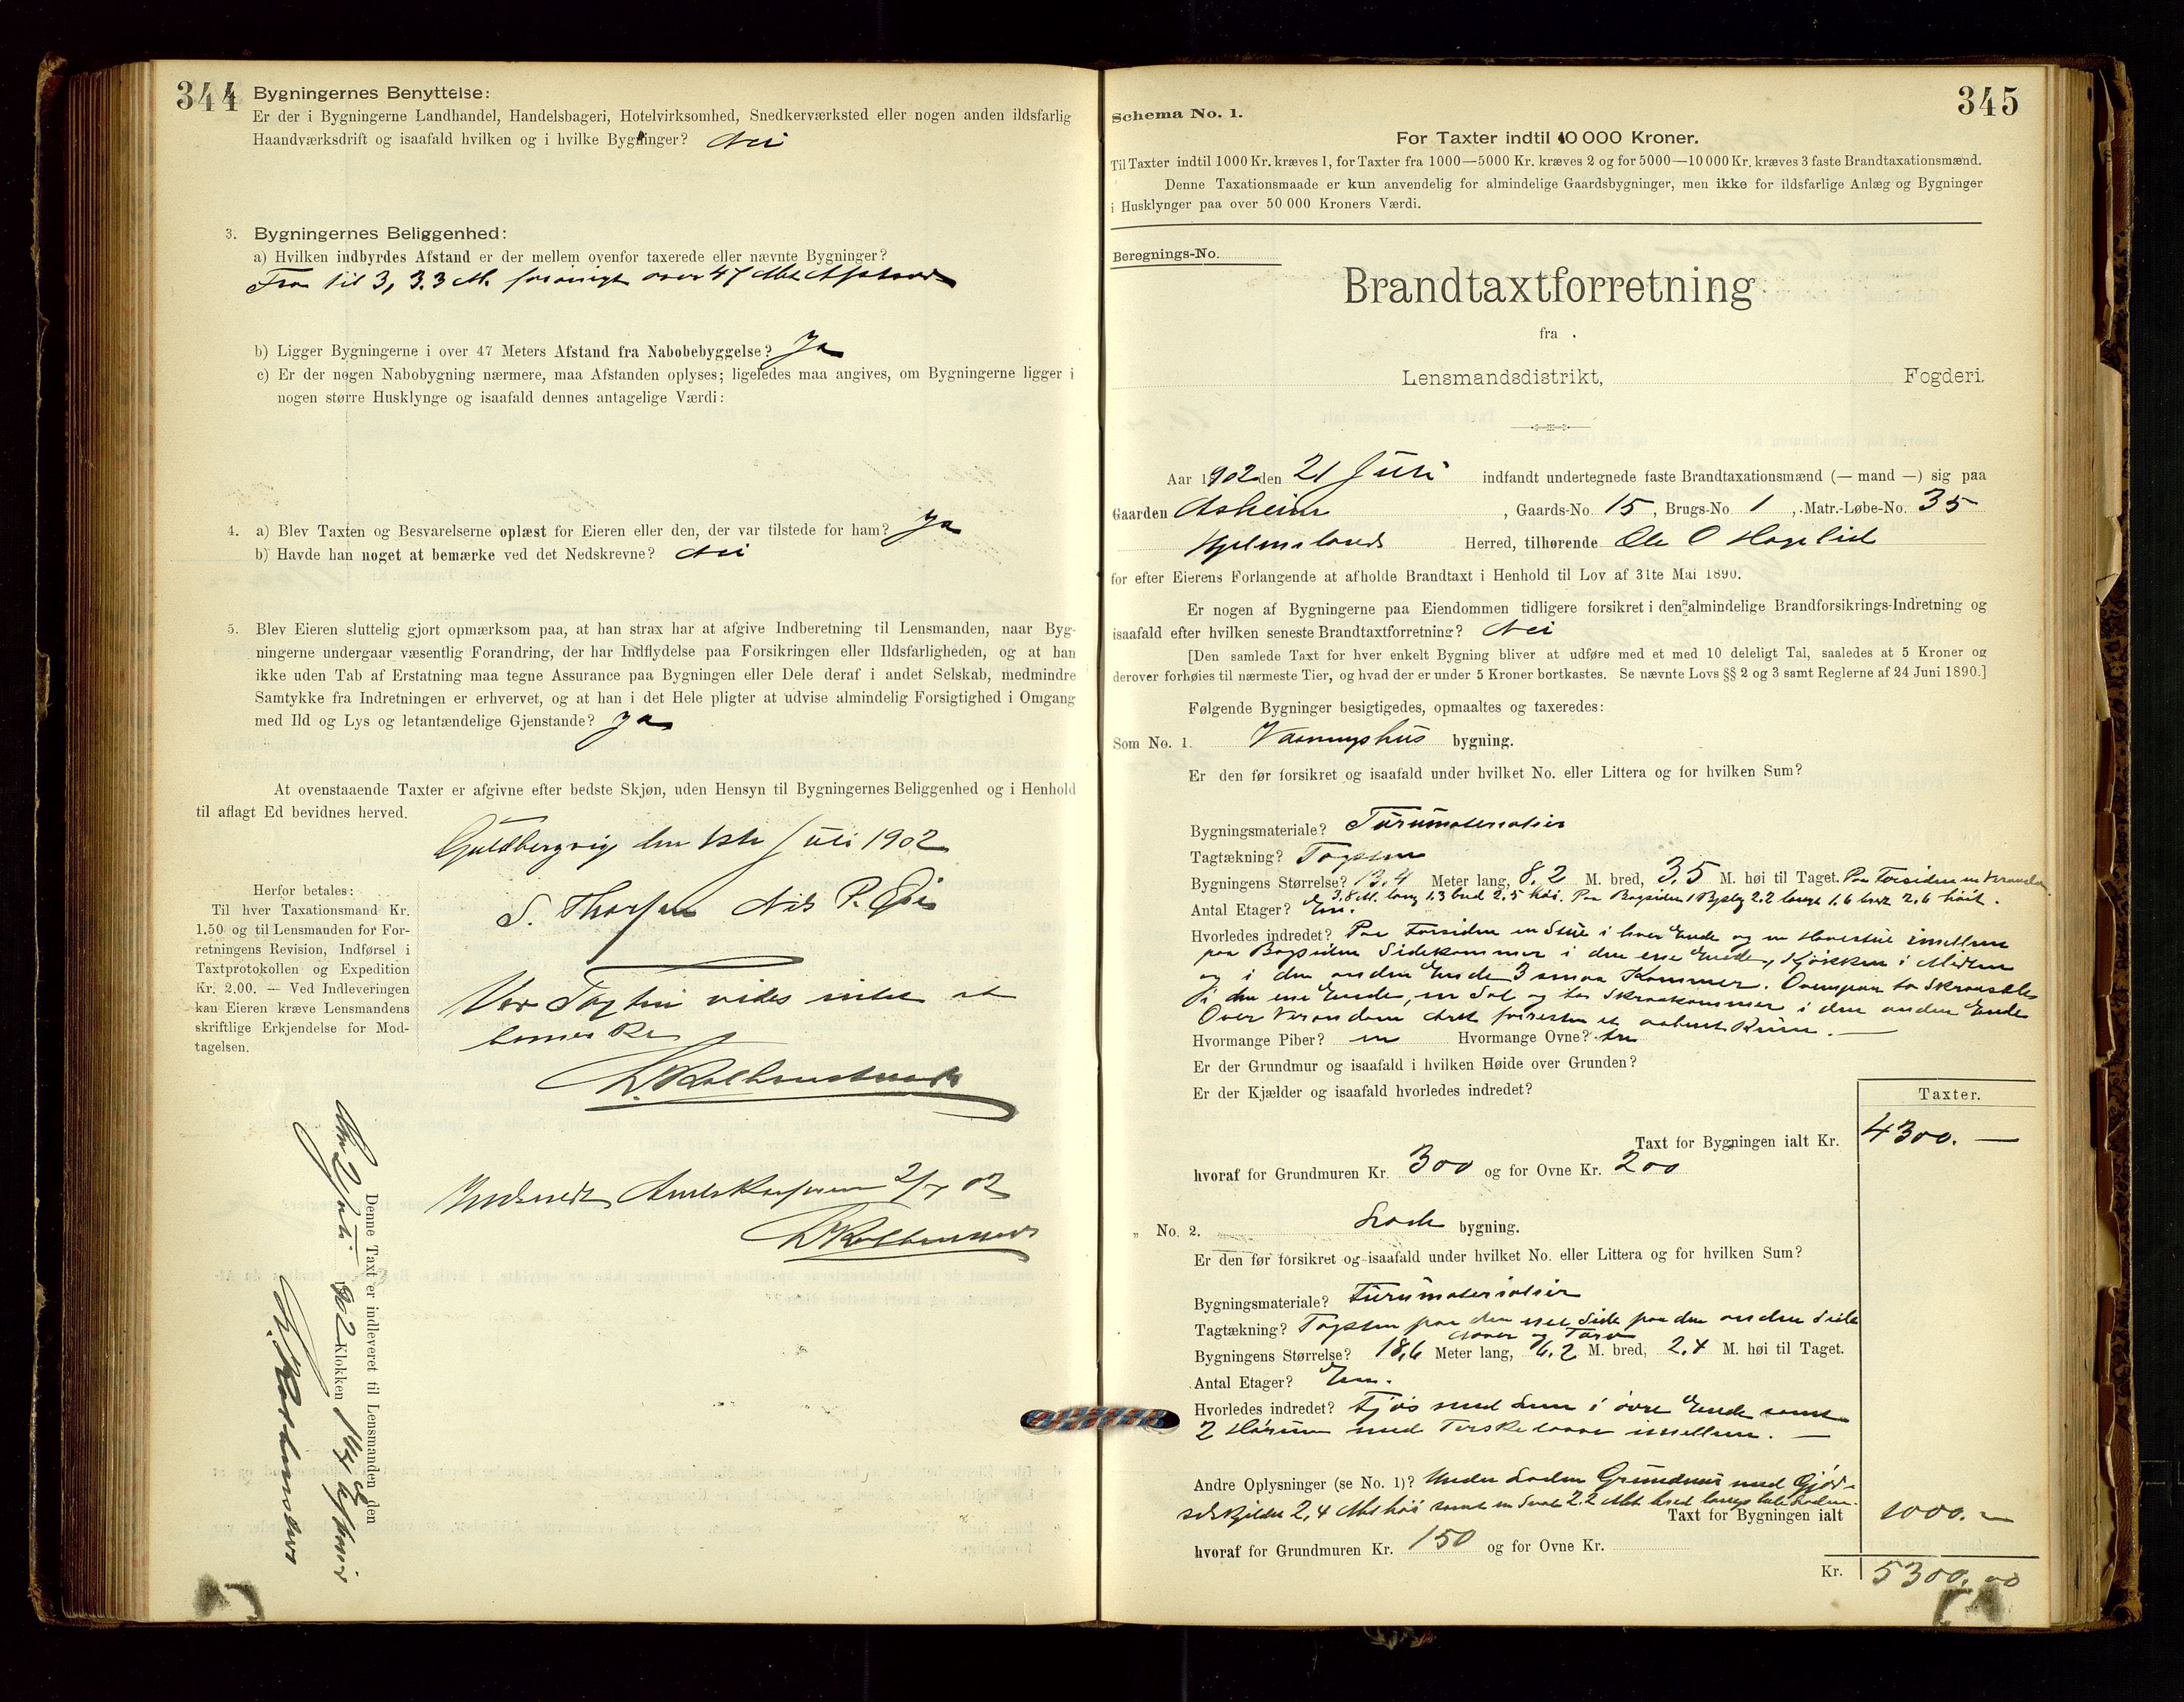 344
Bygningernes Benyttelse:
Er der i Bygningerne Landhandel, Handelsbageri, Hotelvirksomhed, Snedkerværksted eller nogen anden ildsfarlig
Haandværksdrift og isaafald hvilken og i hvilke Bygninger? Nei
3. Bygningernes Beliggenhed:
a) Hvilken indbyrdes Afstand er der mellem ovenfor taxerede eller nævnte Bygninger?
Fra til 3, 3.3 M. forøvrigt over 47 Mtr Afstand
b) Ligger Bygningerne i over 47 Meters Afstand fra Nabobebyggelse? Ja
c) Er der nogen Nabobygning nærmere, maa Afstanden oplyses; ligeledes maa angives, om Bygningerne ligger i
nogen større Husklynge og isaafald dennes antagelige Værdi:
4. a) Blev Taxten og Besvarelserne oplæst for Eieren eller den, der var tilstede for ham? Ja
b) Havde han noget at bemærke ved det Nedskrevne? Nei
5. Blev Eieren sluttelig gjort opmærksom paa, at han strax har at afgive Indberetning til Lensmanden, naar Byg-
ningerne undergaar væsentlig Forandring, der har Indflydelse paa Forsikringen eller Ildsfarligheden, og at han
ikke uden Tab af Erstatning maa tegne Assurance paa Bygningen eller Dele deraf i andet Selskab, medmindre
Samtykke fra Indretningen er erhvervet, og at han i det Hele pligter at udvise almindelig Forsigtighed i Omgang
med Ild og Lys og letantændelige Gjenstande? Ja
At ovenstaaende Taxter er afgivne efter bedste Skjøn, uden Hensyn til Bygningernes Beliggenhed og i Henhold
til aflagt Ed bevidnes herved.
Guldbergvig den 1ste Juli 1902
S. Thorsen Nils P.
Herfor betales:
Til hver Taxationsmand Kr.
1.50 og til Lensmanden for For-
retningens Revision, Indførsel i
Taxtprotokollen og Expedition
Kr. 2.00. — Ved Indleveringen
kan Eieren kræve Lensmandens
skriftlige Erkjendelse for Mod-
tagelsen.
Ved Taxten vides intet at
bemerke
Indsendt Amtskassen 2/7 02
Denne Taxt er indleveret til Lensmanden den
2 Juli 1902 Klokken
345
Schema No. 1.
For Taxter indtil 10 000 Kroner.
Til Taxter indtil 1000 Kr. kræves 1, for Taxter fra 1000—5000 Kr. kræves 2 og for 5000—10000 Kr. kræves 3 faste Brandtaxationsmænd.
Denne Taxationsmaade er kun anvendelig for almindelige Gaardsbygninger, men ikke for ildsfarlige Anlæg og Bygninger
i Husklynger paa over 50 000 Kroners Værdi.
Beregnings-No.
Brandtaxtforretning
fra
Lensmandsdistrikt, Fogderi.
Aar 1902 den 21 Juni indfandt undertegnede faste Brandtaxationsmænd (— mand —) sig paa
Gaarden Asheim, Gaards-No. 15, Brugs-No. 1, Matr.-Løbe-No. 35
Hjelmelands Herred, tilhørende Ole O
for efter Eierens Forlangende at afholde Brandtaxt i Henhold til Lov af 31te Mai 1890.
Er nogen af Bygningerne paa Eiendommen tidligere forsikret i den almindelige Brandforsikrings-Indretning og
isaafald efter hvilken seneste Brandtaxtforretning? Nei
[Den samlede Taxt for hver enkelt Bygning bliver at udføre med et med 10 deleligt Tal, saaledes at 5 Kroner og
derover forhøies til nærmeste Tier, og hvad der er under 5 Kroner bortkastes. Se nævnte Lovs §§ 2 og 3 samt Reglerne af 24 Juni 1890.]
Følgende Bygninger besigtigedes, opmaaltes og taxeredes:
Som No. 1. Vaaningshus bygning.
Er den før forsikret og isaafald under hvilket No. eller Littera og for hvilken Sum?
Bygningsmateriale? Furumaterialier
Tagtækning? Tagsten
Bygningens Størrelse? 13,4 Meter lang, 8,2 M. bred, 3,5 M. høi til Taget. Paa Forsiden en Veranda
3,8 M. lang 1.3 bred 2.5 høi. Paa Bagsiden 1 Bislag 2.2 langt 1.6 bredt 2,6 høit.
Antal Etager? En.
Hvorledes indredet? Paa Forsiden en Stue i hver Ende og en Havestue imellem
paa Bagsiden Sidekammer i den ene Ende, Kjøkken i Midten
og i den anden Ende 3 smaa Kammer. Ovenpaa to
I den ene Ende, en Sal og to Skraakammer i den anden Ende
Over Verandaen et aabent Rum. —
Hvormange Piber? en Hvormange Ovne? tre
Er der Grundmur og isaafald i hvilken Høide over Grunden?
Er der Kjælder og isaafald hvorledes indredet?
Taxter.
Taxt for Bygningen ialt Kr. 4300. —
hvoraf for Grundmuren Kr. 300 og for Ovne Kr. 200
„ No. 2. Lade bygning.
Er den før forsikret og isaafald under hvilket No. eller Littera og for hvilken Sum?
Bygningsmateriale? Furumaterialier
Tagtækning? Tagsten paa den ene Side paa den anden Side
Næver og Torv
Bygningens Størrelse? 18,6 Meter lang, 6.2 M. bred, 2,4 M. høi til Taget.
Antal Etager? En.
Hvorledes indredet? Fjøs med Lem i øvre Ende samt
2 Hørum med Tærskelaave imellem. —
Andre Oplysninger (se No. 1)? Under Laden Grundmur med Gjød-
selskjelder 2,4 Mtr høi samt en Sval 2.2 Mtr bred langs hele Laden.
Taxt for Bygningen ialt 1000. —
hvoraf for Grundmuren Kr. 150 og for Ovne Kr.
Kr. 5300,00